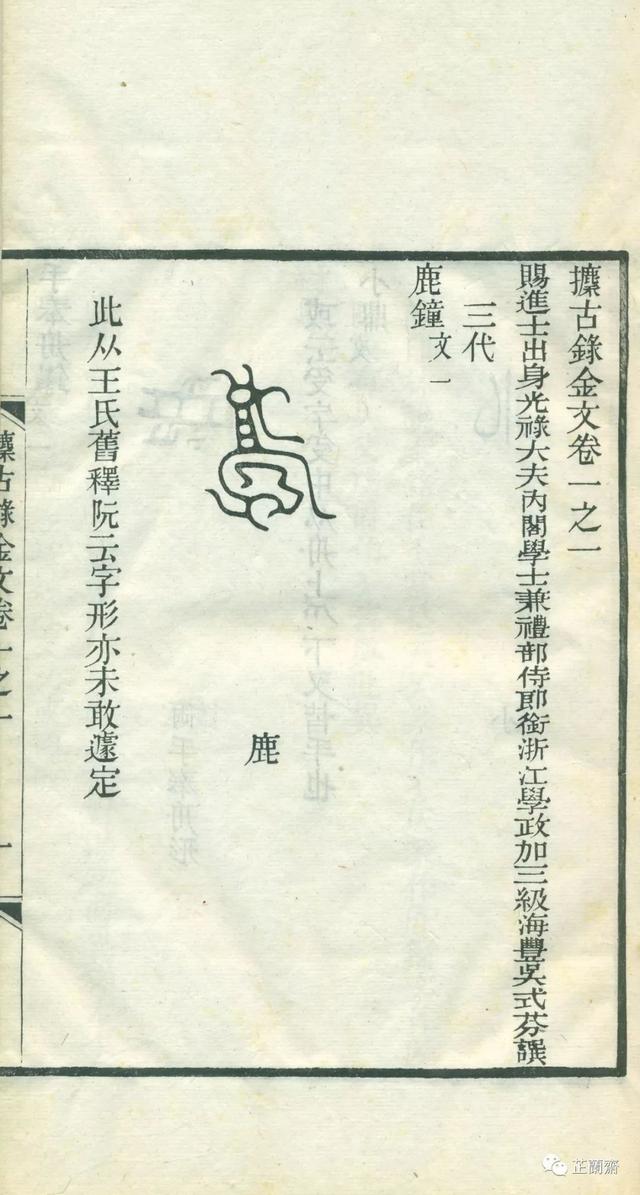 攈古錄金文卷一之一
賜進士出身光祿大夫內閣學士兼禮部侍郎銜浙江學政加三級海豐吳式芬譔
三代
鹿鐘文一
鹿
此从王氏舊釋阮云字形亦未敢遽定
攈古錄金文卷一之一 一
芷蘭齋